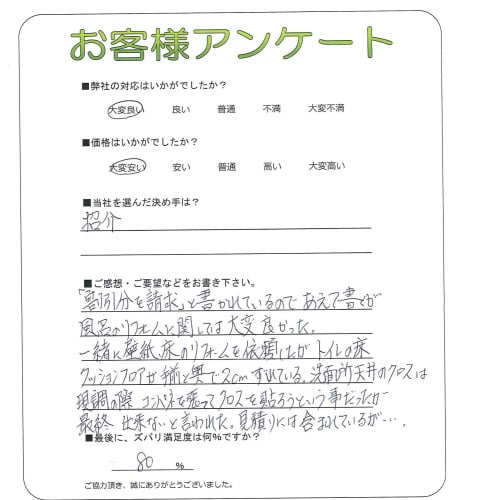 お客様アンケート
■弊社の対応はいかがでしたか？
大変良い 良い 普通 不満 大変不満
■価格はいかがでしたか？
大変安い 安い 普通 高い 大変高い
■当社を選んだ決め手は？
紹介
■ご感想・ご要望などをお書き下さい。
「割引分を請求」と書かれているのであえて書くが
風呂のリフォームに関しては大変良かった。
一緒に壁紙、床のリフォームを依頼したがトイレの床
クッションフロアが手前と奥で2cmずれている。洗面所天井のクロスは
現調の際コンパネを張ってクロスを貼ろうという事だったが
最終出来ないと言われた。見積りには含まれているが….
■最後に、ズバリ満足度は何%ですか？
80 %
ご協力頂き、誠にありがとうございました。